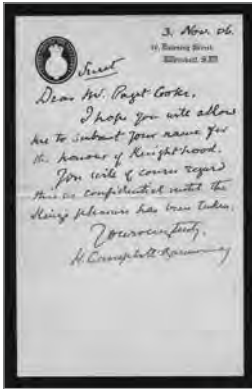 3. Nov. 06
10, Downing Street,
Whitehall, S.W.
Secret
Dear Mr. Paget Cooke,
I hope you will allow
me to submit your name for
the honour of Knighthood.
You will of course regard
this as confidential until the
King's pleasure has been taken.
Yours very truly,
H. Campbell-Bannerman